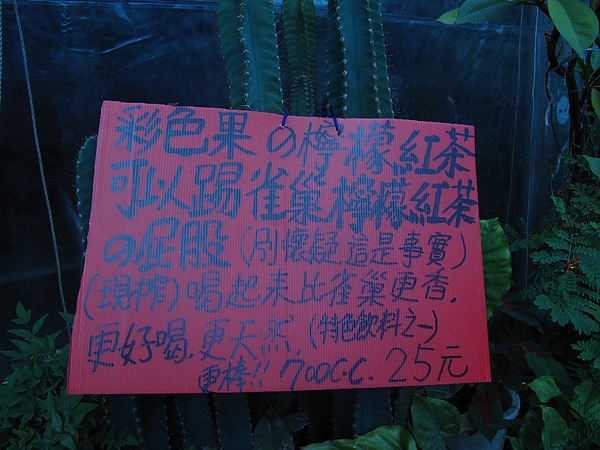 彩色果の檸檬紅茶
可以踢雀巢檸檬紅茶
の屁股(別懷疑這是事實)
(現榨)喝起來比雀巢更香,
更好喝.更天然.(特色飲料之一)
更棒!! 700C.C. 25元